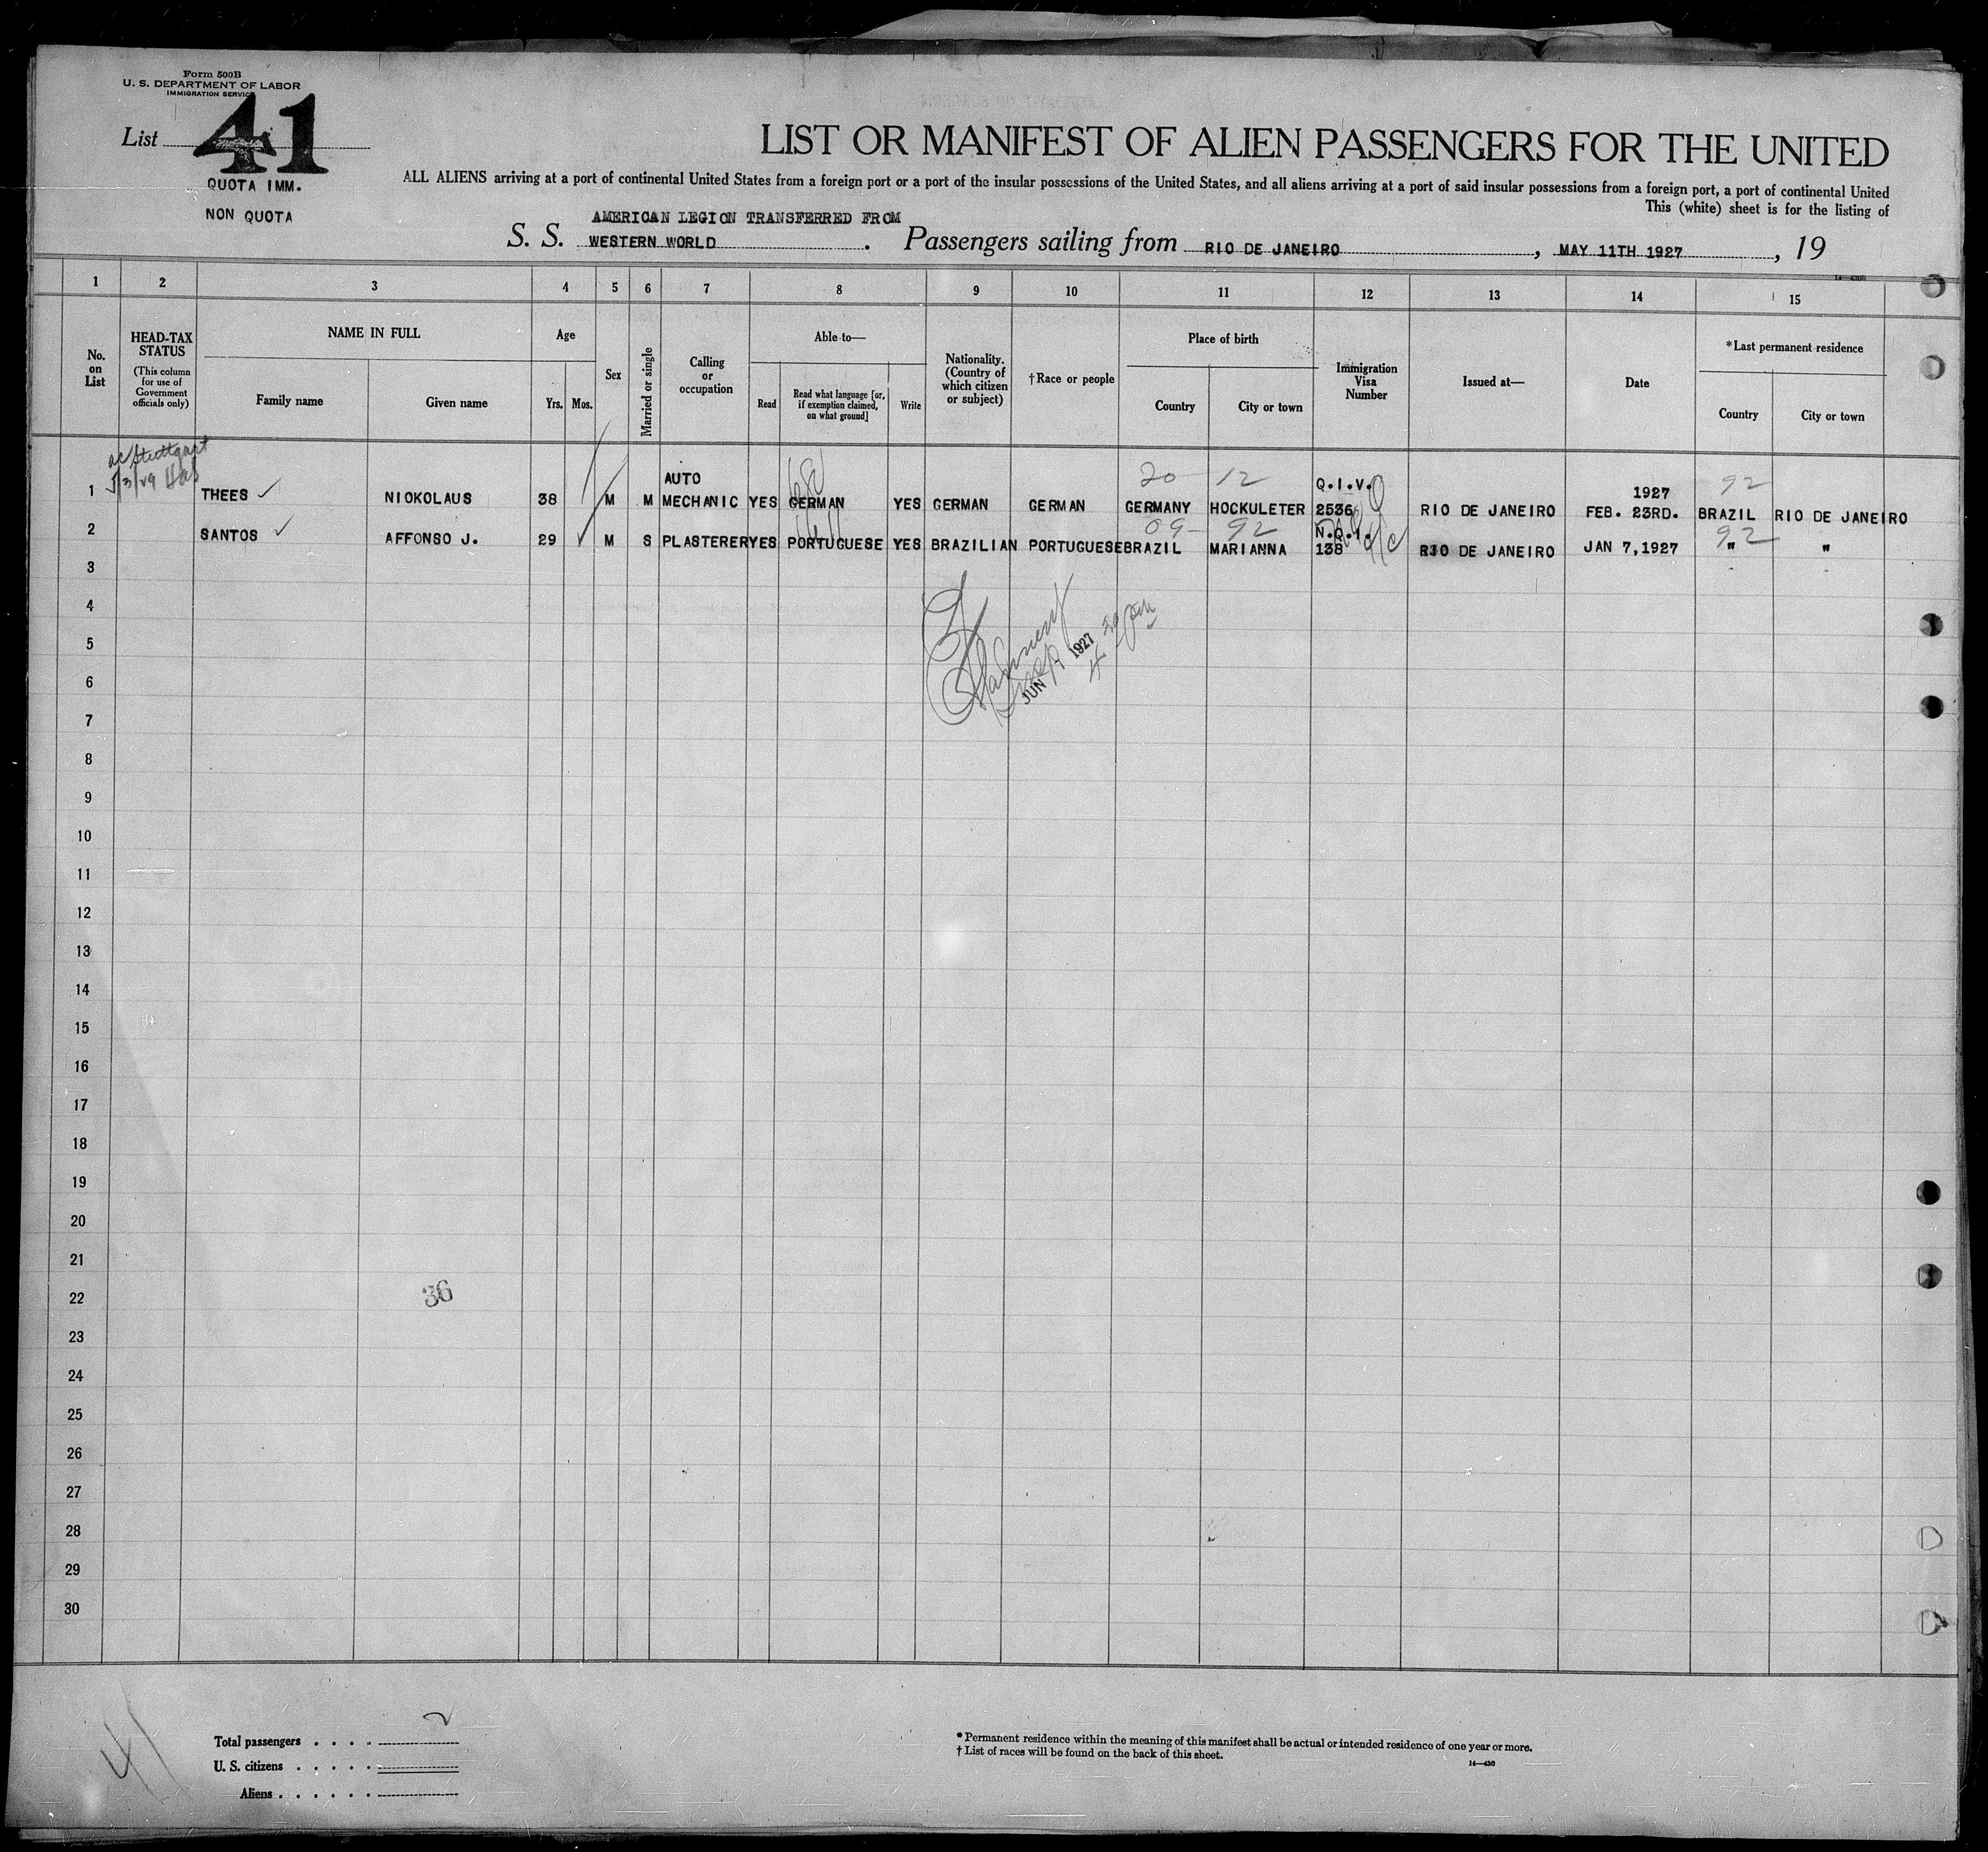 Form 500B
U. S. DEPARTMENT OF LABOR
IMMIGRATION SERVICE
List 41
QUOTA IMM.
NON QUOTA
LIST OR MANIFEST OF ALIEN PASSENGERS FOR THE UNITED
ALL ALIENS arriving at a port of continental United States from a foreign port or a port of the insular possessions of the United States, and all aliens arriving at a port of said insular possessions from a foreign port, a port of continental United
This (white) sheet is for the listing of
AMERICAN LEGION TRANSFERRED FROM
S. S. WESTERN WORLD. Passengers sailing from RIO DE JANEIRO, MAY 11TH 1927, 19
1 2 3 4 5 6 7 8 9 10 11 12 13 14 15
No. on List
HEAD-TAX STATUS
(This column for use of Government officials only)
NAME IN FULL
Family name
Given name
Age
Yrs. Mos.
Sex
Married or single
Calling or occupation
Able to—
Read
Read what language [or, if exemption claimed, on what ground]
Write
Nationality. (Country of which citizen or subject)
†Race or people
Place of birth
Country
City or town
Immigration Visa Number
Issued at—
Date
*Last permanent residence
Country
City or town
Stuttgart
20 12 92
AUTO Q.I.V. 1927
1 THEES NIOKOLAUS 38 M M MECHANIC YES GERMAN YES GERMAN GERMAN GERMANY HOCKULETER 2536 RIO DE JANEIRO FEB. 23RD. BRAZIL RIO DE JANEIRO
09 92 N.Q.I. 92
2 SANTOS AFFONSO J. 29 M S PLASTERER YES PORTUGUESE YES BRAZILIAN PORTUGUESE BRAZIL MARIANNA 138 RIO DE JANEIRO JAN 7,1927 " "
3
4
5
JUN 1927
6
7
8
9
10
11
12
13
14
15
16
17
18
19
20
21
22
36
23
24
25
26
27
28
29
30
41
Total passengers . . . . 2
U. S. citizens . . . . .
Aliens . . . . . .
* Permanent residence within the meaning of this manifest shall be actual or intended residence of one year or more.
† List of races will be found on the back of this sheet.
14—430